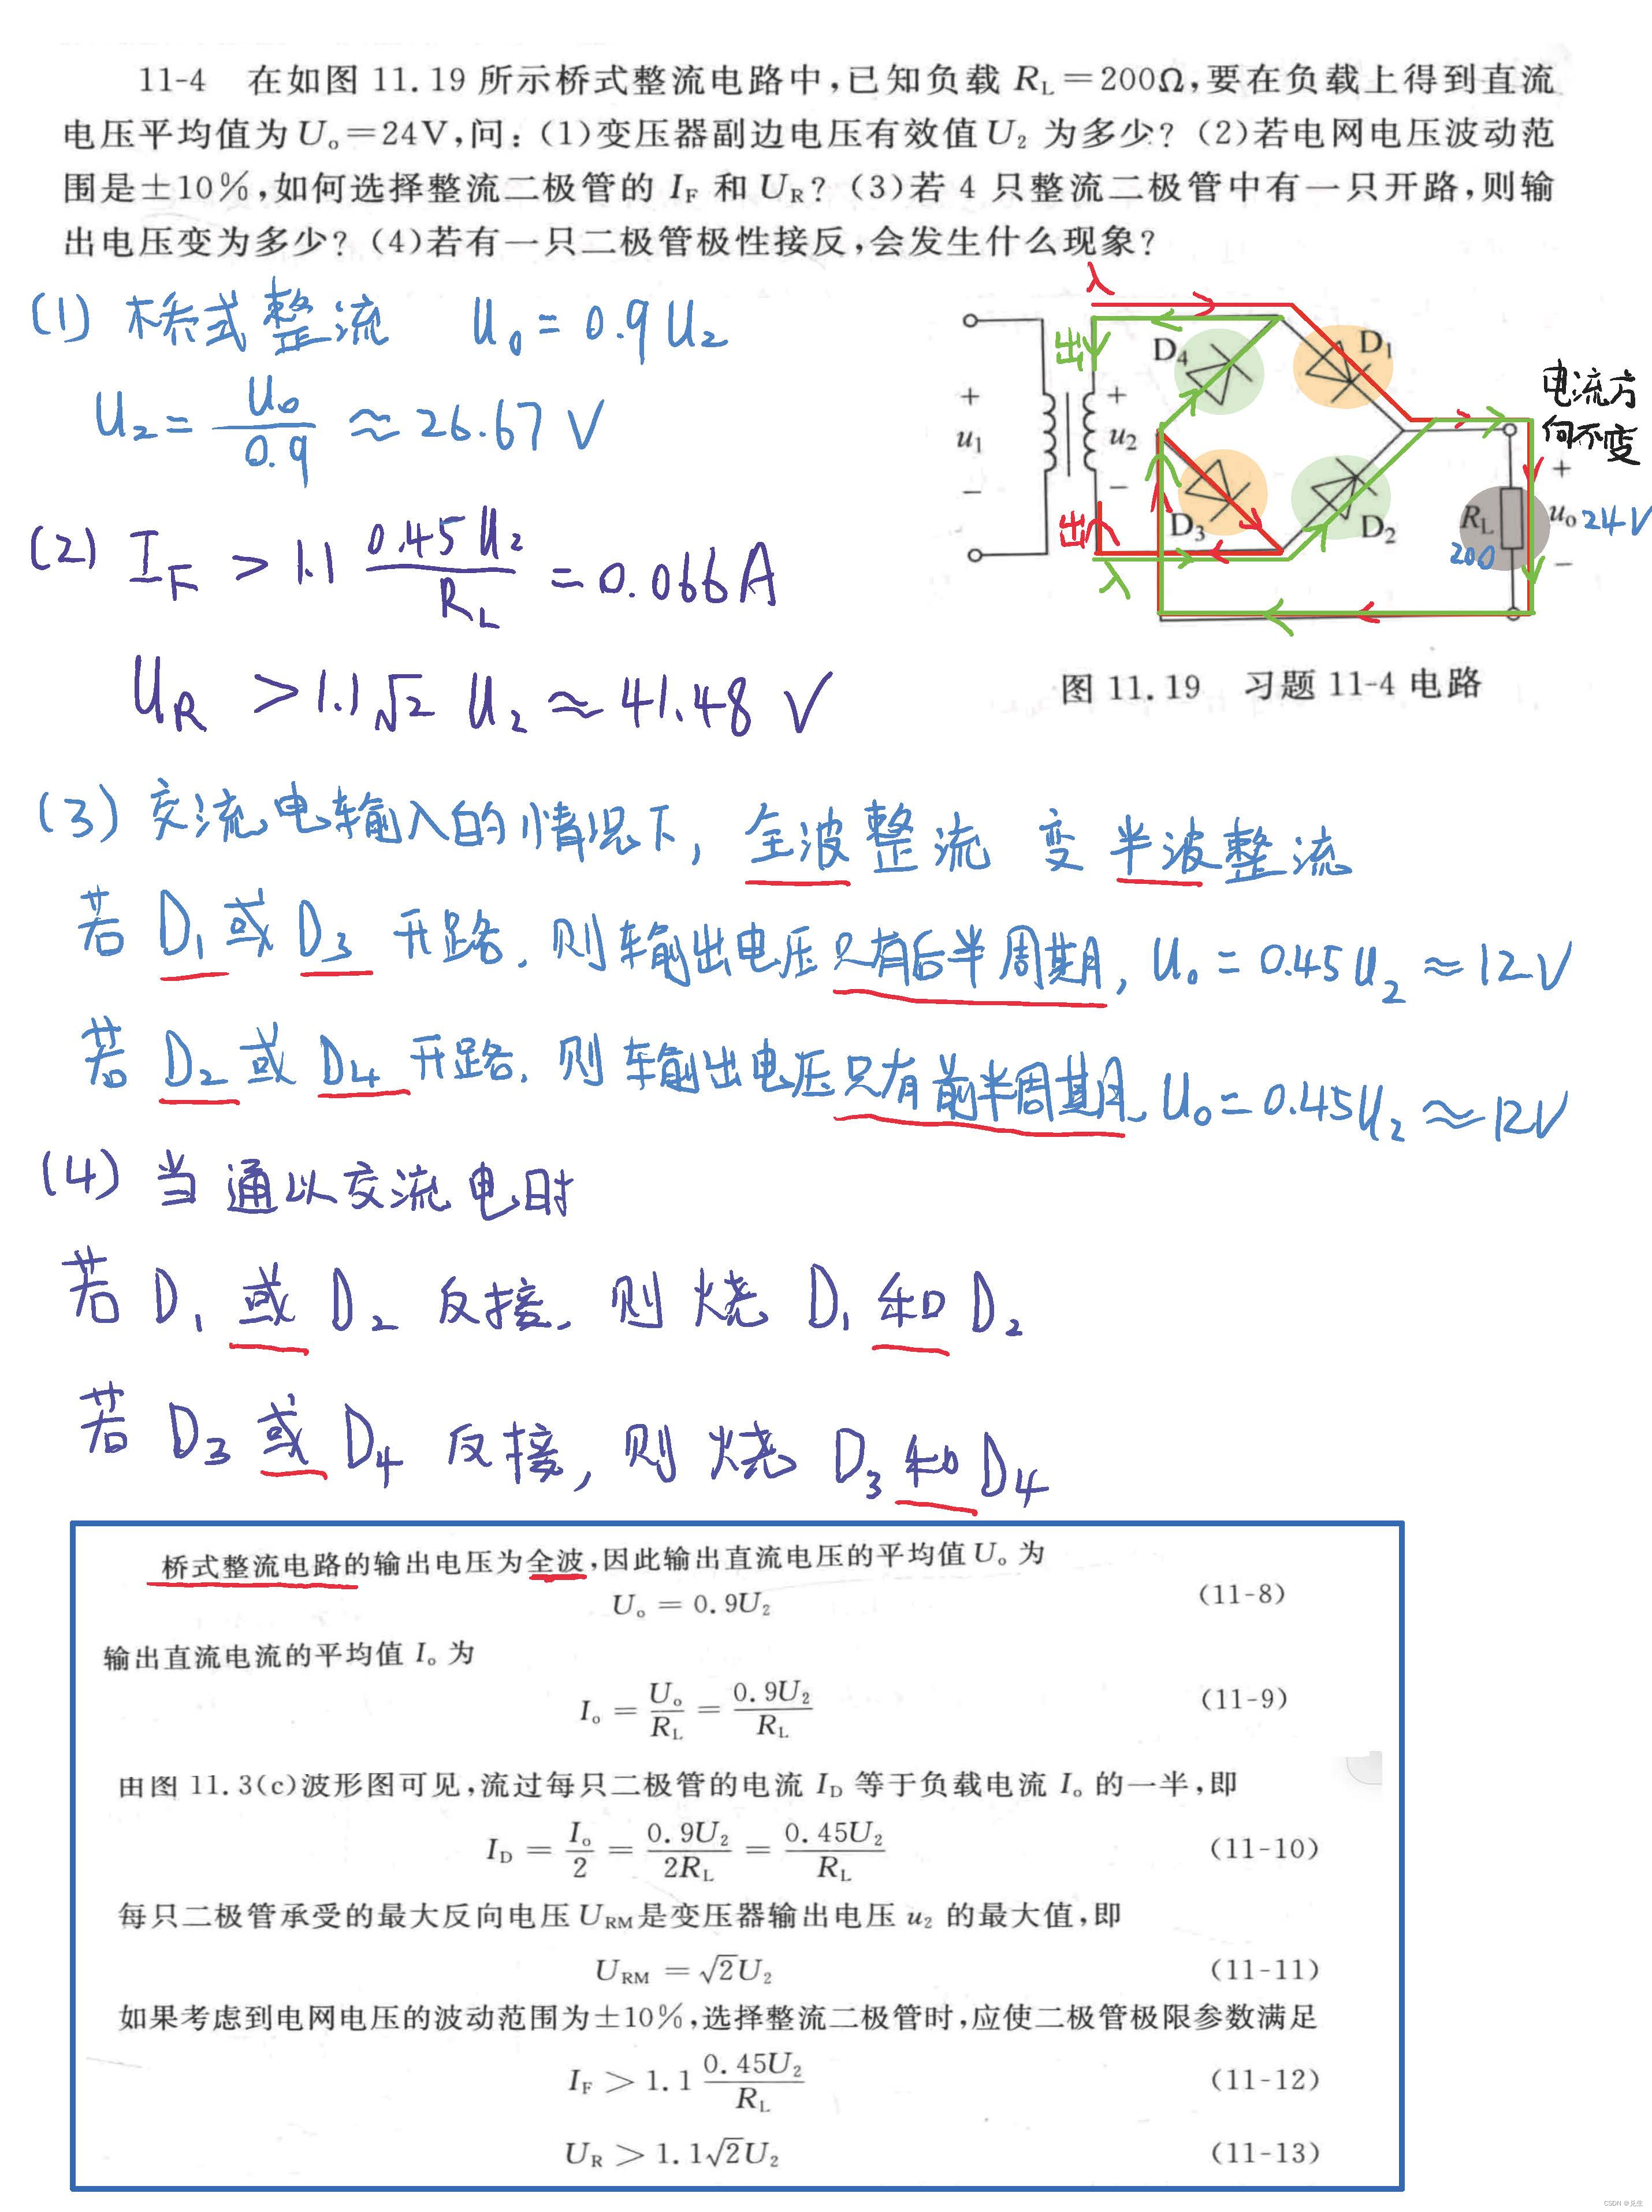 11-4 在如图 11.19 所示桥式整流电路中,已知负载 R_L=200Ω,要在负载上得到直流
电压平均值为 U_o=24V,问:(1)变压器副边电压有效值 U_2 为多少?(2)若电网电压波动范
围是±10%,如何选择整流二极管的 I_F 和 U_R?(3)若 4 只整流二极管中有一只开路,则输
出电压变为多少?(4)若有一只二极管极性接反,会发生什么现象?
(1) 桥式整流 U_o = 0.9 U_2
U_2 = U_o/0.9 ≈ 26.67 V
(2) I_F > 1.1 0.45 U_2/R_L = 0.066 A
U_R > 1.1 √2 U_2 ≈ 41.48 V
入
出
D_4
D_1
电流方
向不变
+
u_1
−
+
u_2
−
出
D_3
D_2
入
R_L
200
+
u_o 24V
−
图 11.19 习题 11-4 电路
(3) 交流电输入的情况下, 全波整流 变 半波整流
若 D_1 或 D_3 开路, 则输出电压只有后半周期, U_o = 0.45 U_2 ≈ 12V
若 D_2 或 D_4 开路, 则输出电压只有前半周期, U_o = 0.45 U_2 ≈ 12V
(4) 当通以交流电时
若 D_1 或 D_2 反接, 则烧 D_1 和 D_2
若 D_3 或 D_4 反接, 则烧 D_3 和 D_4
桥式整流电路的输出电压为全波,因此输出直流电压的平均值 U_o 为
U_o = 0.9U_2 (11-8)
输出直流电流的平均值 I_o 为
I_o = U_o/R_L = 0.9U_2/R_L (11-9)
由图 11.3(c)波形图可见,流过每只二极管的电流 I_D 等于负载电流 I_o 的一半,即
I_D = I_o/2 = 0.9U_2/2R_L = 0.45U_2/R_L (11-10)
每只二极管承受的最大反向电压 U_RM 是变压器输出电压 u_2 的最大值,即
U_RM = √2U_2 (11-11)
如果考虑到电网电压的波动范围为±10%,选择整流二极管时,应使二极管极限参数满足
I_F > 1.1 0.45U_2/R_L (11-12)
U_R > 1.1√2U_2 (11-13)